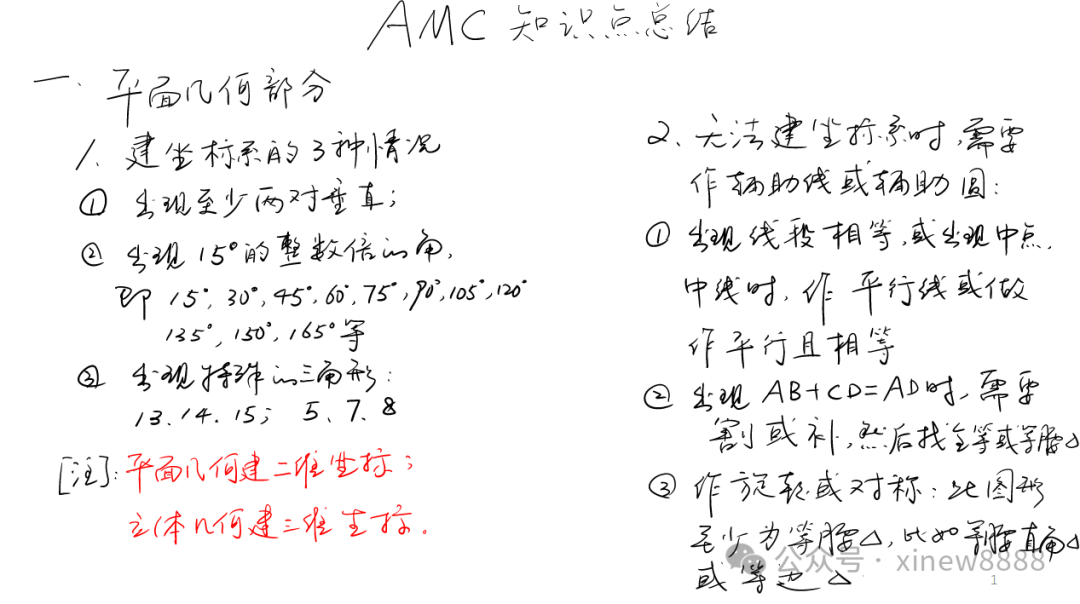 AMC 知识点总结
一. 平面几何部分
1. 建坐标系的3种情况
① 出现至少两对垂直;
② 出现15°的整数倍的角,
即 15°,30°,45°,60°,75°,90°,105°,120°
135°,150°,165°等
③ 出现特殊的三角形:
13.14.15; 5、7、8
[注]: 平面几何建二维坐标;
立体几何建三维坐标.
2、无法建坐标系时,需要
作辅助线或辅助圆:
① 出现线段相等,或出现中点,
中线时,作平行线或做
作平行且相等
② 出现AB+CD=AD时,需要
割或补,然后找全等或等腰△
③ 作旋转或对称:此图形
至少为等腰△,比如等腰直角△
或等边△
公众号 · xinew8888
1